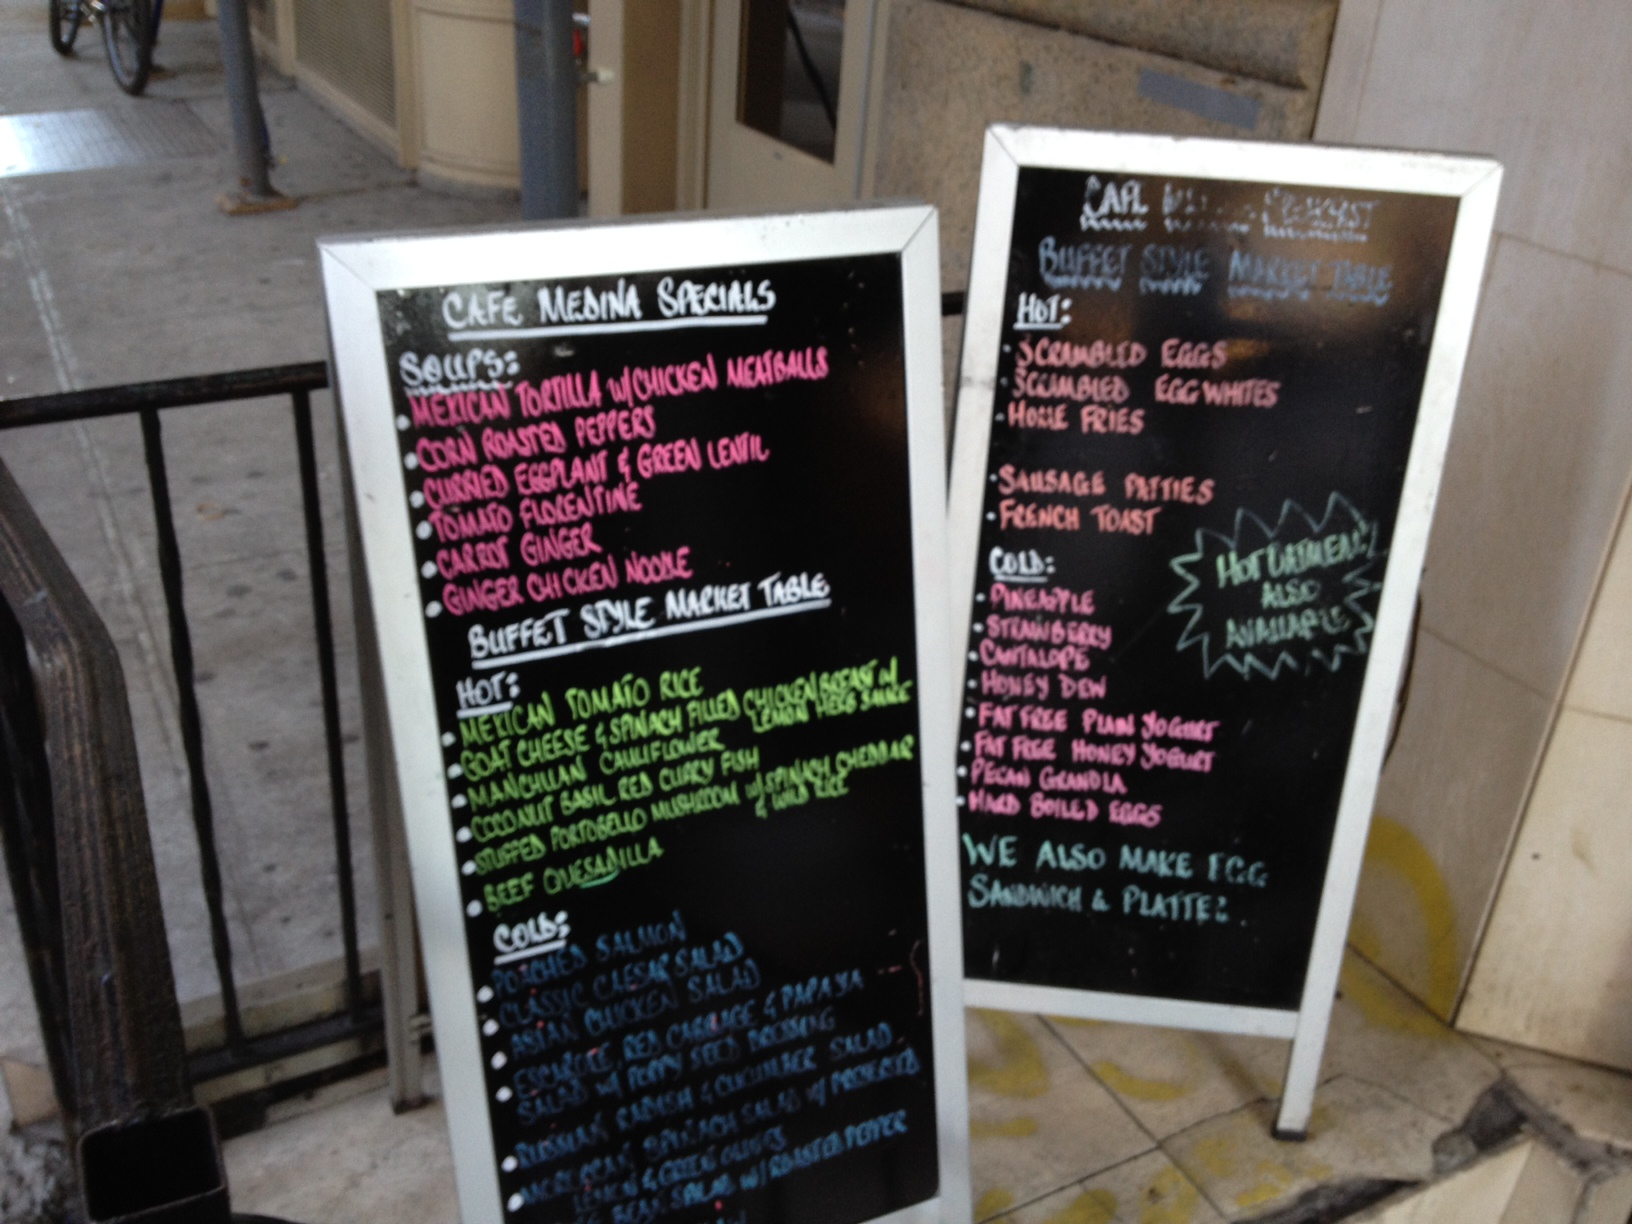 CAFE MEDINA SPECIALS
SOUPS:
• MEXICAN TORTILLA W/ CHICKEN MEATBALLS
• CORN ROASTED PEPPERS
• CURRIED EGGPLANT & GREEN LENTIL
• TOMATO FLORENTINE
• CARROT GINGER
• GINGER CHICKEN NOODLE
BUFFET STYLE MARKET TABLE
HOT:
• MEXICAN TOMATO RICE
• GOAT CHEESE & SPINACH FILLED CHICKEN BREAST W/
LEMON HERB SAUCE
• MANCHUIAN CAULIFLOWER
• COCONUT BASIL RED CURRY FISH
• STUFFED PORTOBELLO MUSHROOM W/ SPINACH CHEDDAR
& WILD RICE
• BEEF QUESADILLA
COLD:
• POACHED SALMON
• CLASSIC CAESAR SALAD
• ASIAN CHICKEN SALAD
• ESCAROLE, RED CABBAGE & PAPAYA
SALAD W/ POPPY SEED DRESSING
• RUSSIAN RADISH & CUCUMBER SALAD
• MOROCCAN SPINACH SALAD W/
LEMON & GREEN OLIVES
BEAN SALAD W/ ROASTED PEPPER
CAFE
BUFFET STYLE MARKET TABLE
HOT:
• SCRAMBLED EGGS
• SCRAMBLED EGG WHITES
• HOME FRIES
• SAUSAGE PATTIES
• FRENCH TOAST
COLD:
• PINEAPPLE
• STRAWBERRY
• CANTALOPE
• HONEY DEW
• FAT FREE PLAIN YOGURT
• FAT FREE HONEY YOGURT
• PECAN GRANOLA
• HARD BOILED EGGS
HOT OATMEAL
ALSO
AVAILABLE
WE ALSO MAKE EGG
SANDWICH & PLATTE